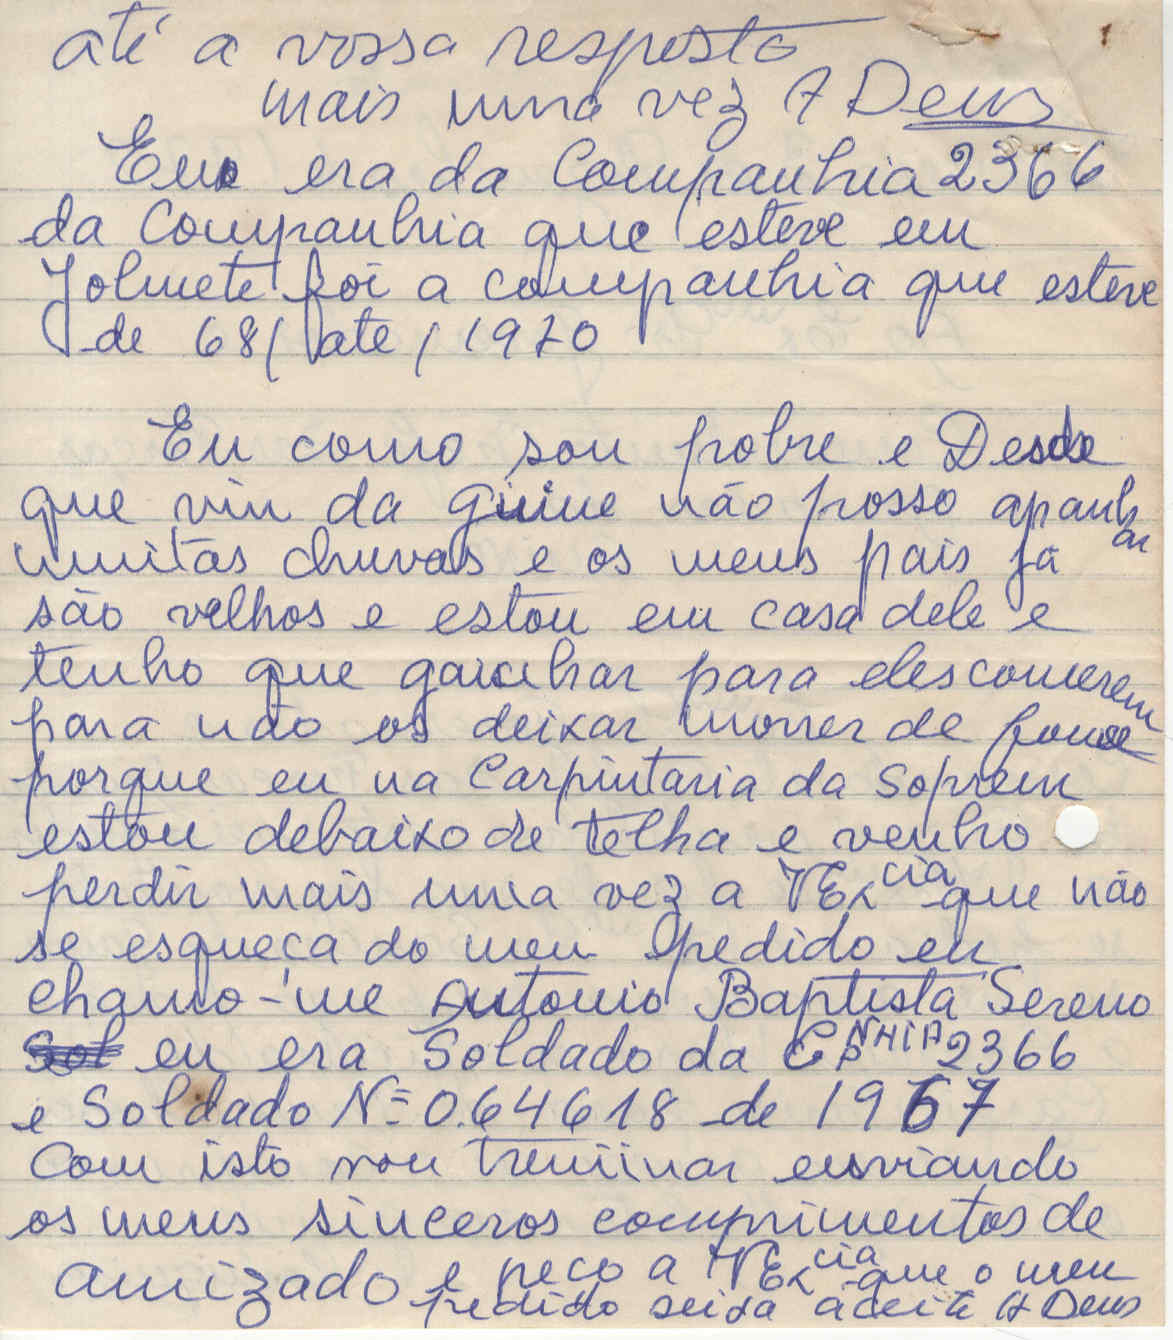 até a vossa resposta
mais uma vez A Deus
Eu era da Companhia 2366
da Companhia que esteve em
Jolmete foi a companhia que esteve
de 68/ate/1970
Eu como sou pobre e Desde
que vin da guine não posso apanhar
muitas chuvas e os meus pais já
são velhos e estou em casa dele e
tenho que gainhar para eles comerem
para não os deixar morrer de fome
porque eu na Carpintaria da Soprem
estou debaixo de telha e venho
perdir mais uma vez a VEx cia que não
se esqueça do meu pedido eu
chamo-me Antonio Baptista Sereno
Sol eu era Soldado da CPNHIA 2366
e Soldado Nº 064618 de 1967
Com isto vou treminar enviando
os meus sinceros comprimentos de
amizado e peco a VEx cia que o meu
pedido seixa aceite A Deus